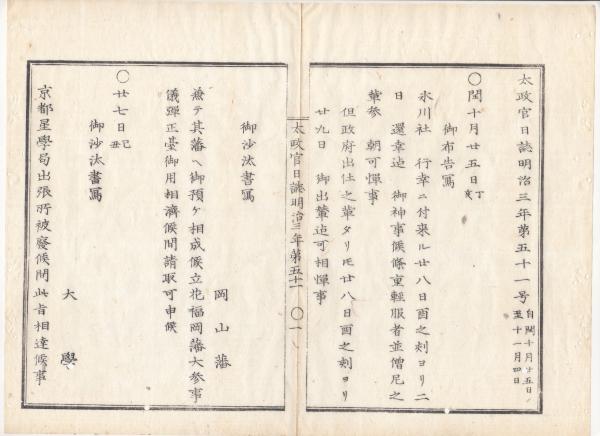 太政官日誌明治三年第五十一号 自閏十月廿五日 至十一月四日
〇閏十月廿五日丁亥
御布告寫
氷川社 行幸ニ付来ル廿八日酉之刻ヨリ二
日 還幸迠 御神事候條重軽服者並僧尼之
輩参 朝可憚事
但政府出仕之輩タリ𪜈廿八日酉之刻ヨリ
廿九日 御出輦迠可相憚事
太政官日誌明治三年第五十一 〇一
御沙汰書寫
岡山藩
兼テ其藩ヘ御預ケ相成候立花福岡藩大参事
儀彈正臺御用相濟候間請取可申候
〇廿七日己丑
御沙汰書寫
大學
京都星學局出張所被廢候間此旨相達候事